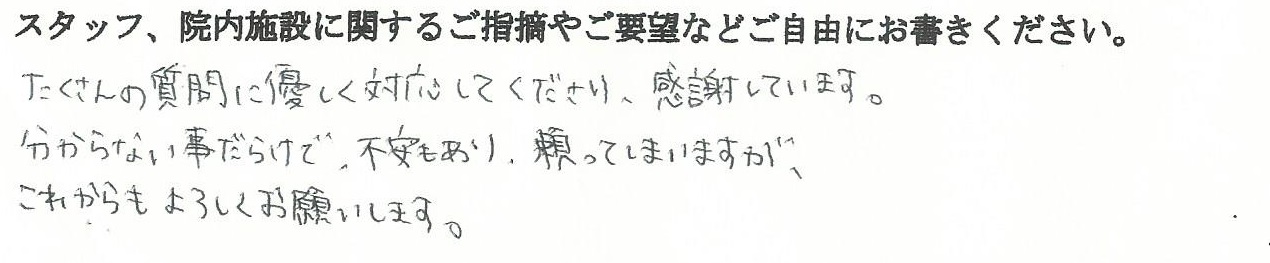 スタッフ、院内施設に関するご指摘やご要望などご自由にお書きください。
たくさんの質問に優しく対応してくださり、感謝しています。
分からない事だらけで、不安もあり、頼ってしまいますが、
これからもよろしくお願いします。